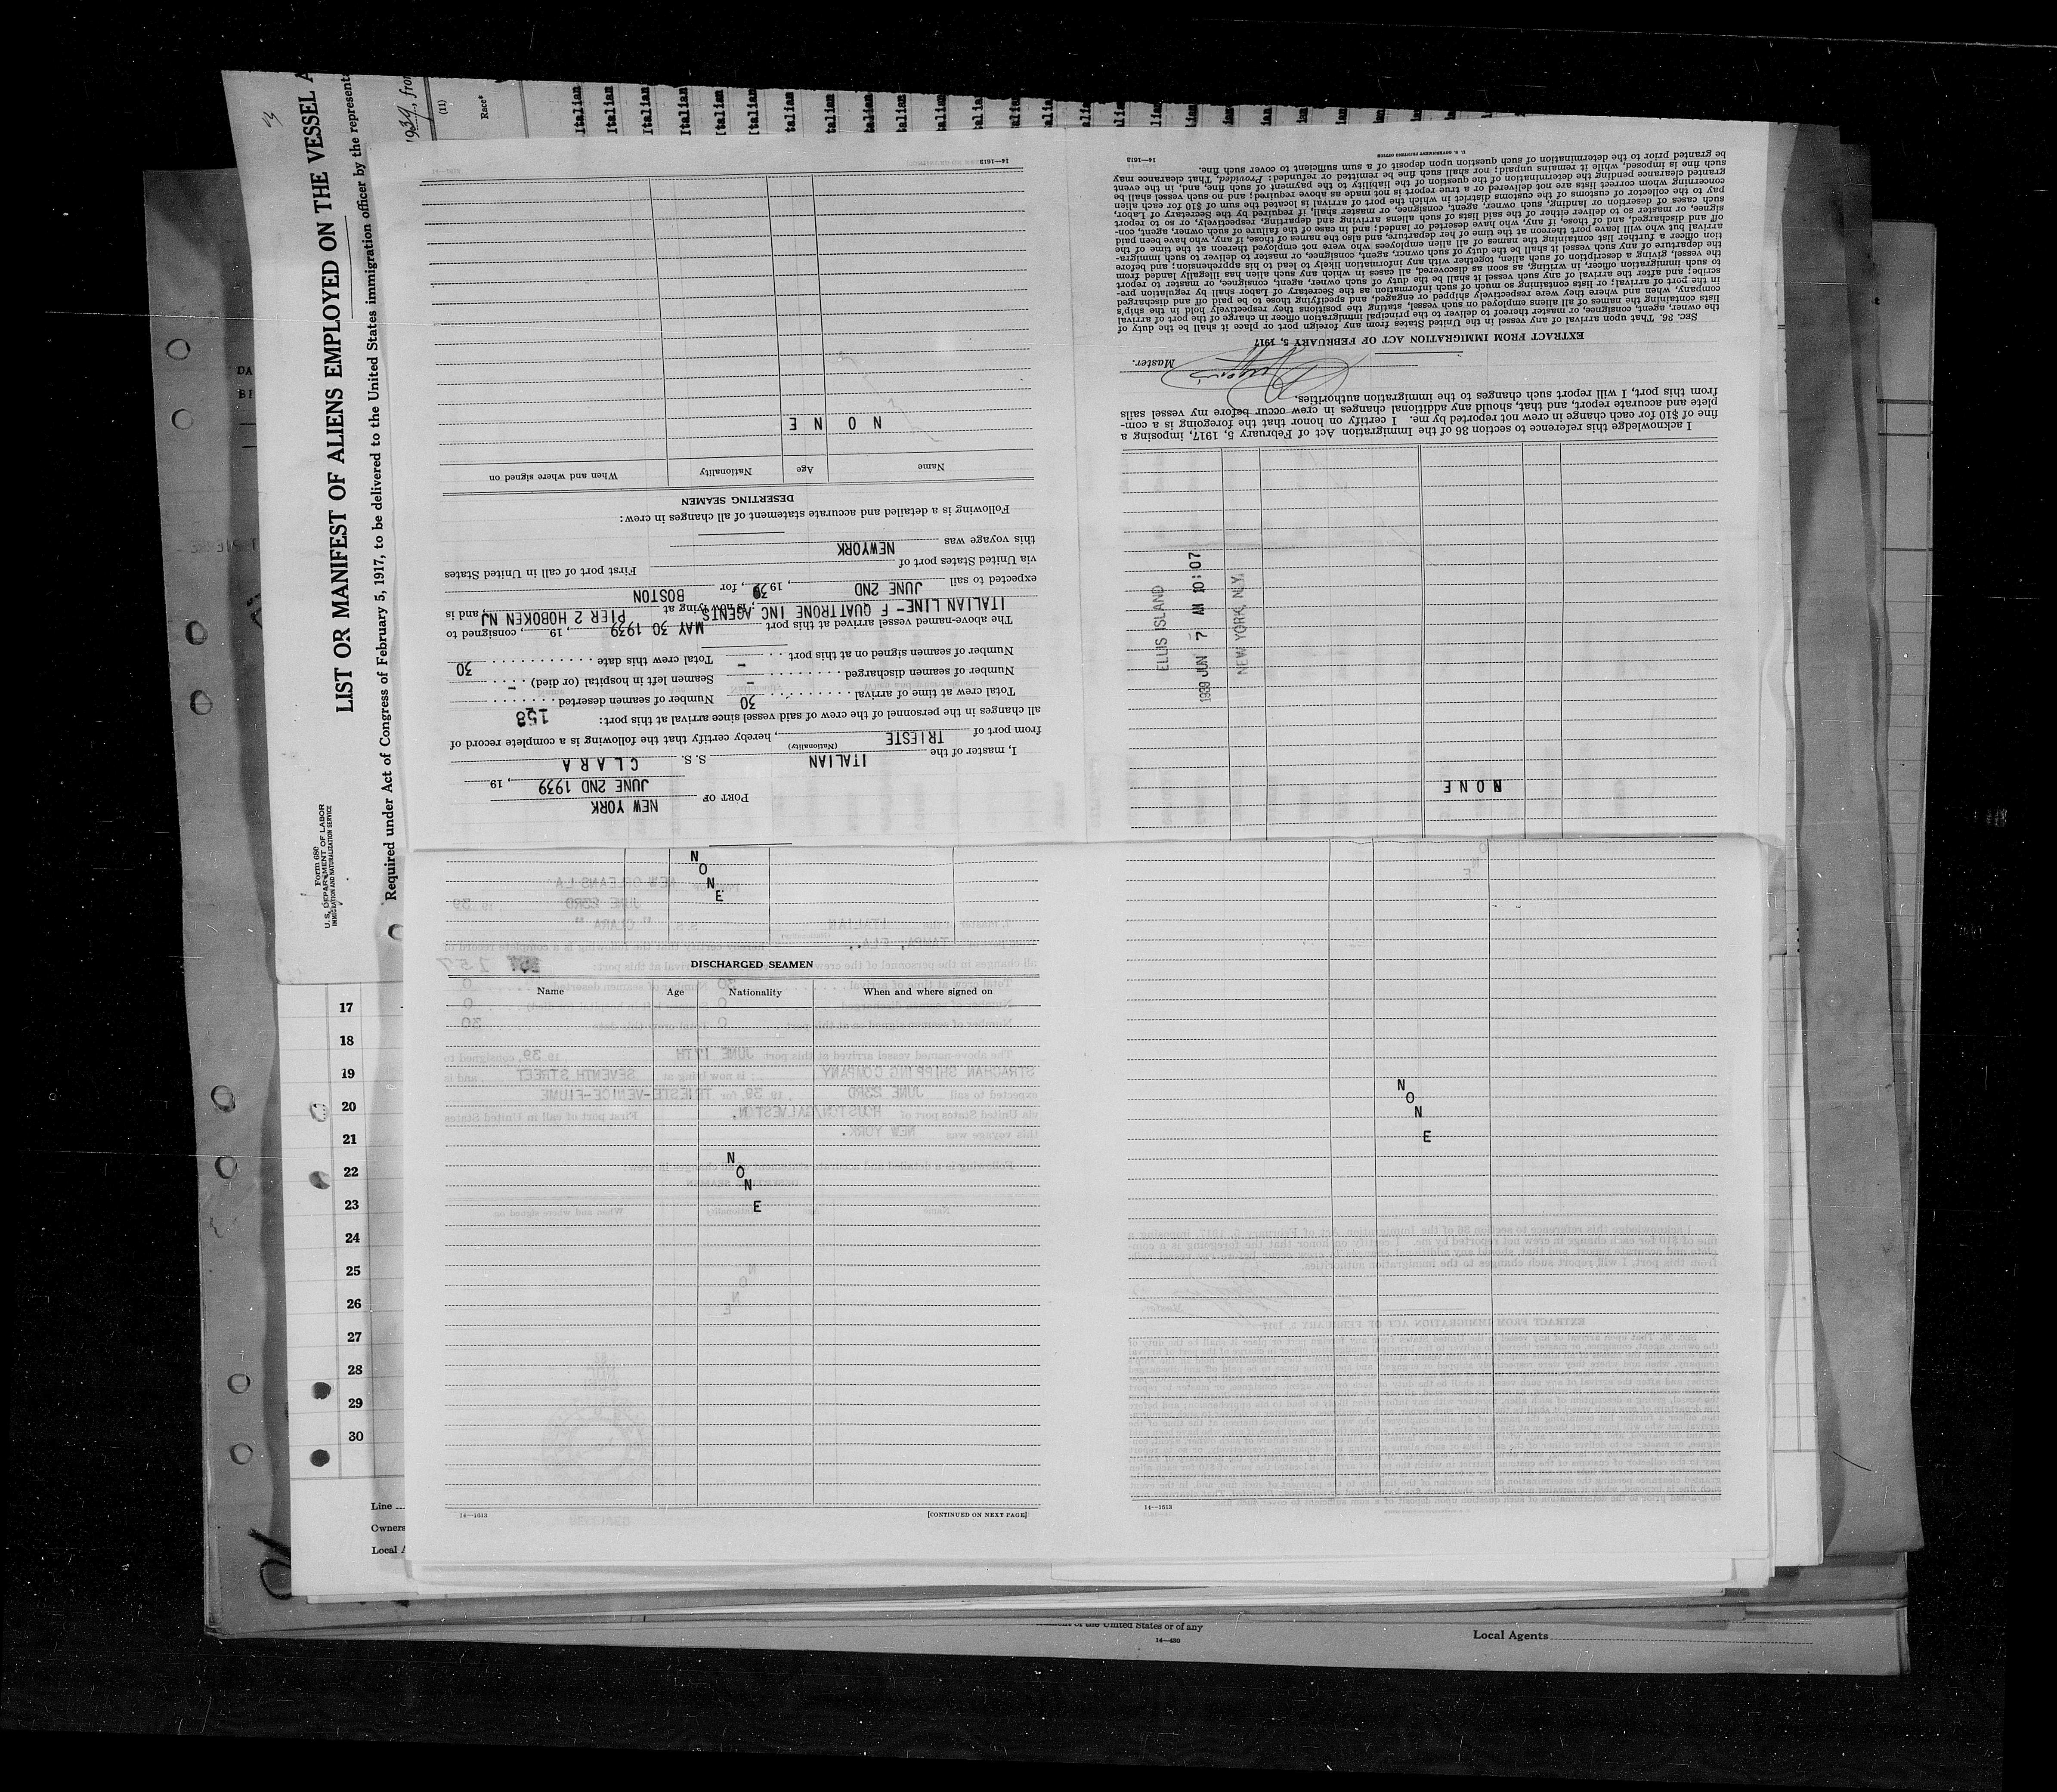 LIST OR MANIFEST OF ALIENS EMPLOYED ON THE VESSEL A
Required under Act of Congress of February 5, 1917, to be delivered to the United States immigration officer by the represent
Form 680
U. S. DEPARTMENT OF LABOR
IMMIGRATION AND NATURALIZATION SERVICE
(11)
Race*
Italian
Italian
Italian
Italian
Italian
Italian
PORT OF NEW YORK
JUNE 2ND 1939, 19
I, master of the ITALIAN S. S. CLARA
(Nationality)
from port of TRIESTE, hereby certify that the following is a complete record of
all changes in the personnel of the crew of said vessel since arrival at this port: 158
Total crew at time of arrival 30 Number of seamen deserted -
Number of seamen discharged - Seamen left in hospital (or died) -
Number of seamen signed on at this port - Total crew this date 30
The above-named vessel arrived at this port MAY 30 1939, 19, consigned to
ITALIAN LINE- F QUATTRONE INC AGENTS; is now lying at PIER 2 HOBOKEN NJ, and is
expected to sail JUNE 2ND, 1939, for BOSTON
via United States port of First port of call in United States
this voyage was NEWYORK
Following is a detailed and accurate statement of all changes in crew:
DESERTING SEAMEN
Name Age Nationality When and where signed on
N O N E
14—1613
NONE
ELLIS ISLAND
1939 JUN 7 AM 10:07
NEW YORK, N.Y.
I acknowledge this reference to section 36 of the Immigration Act of February 5, 1917, imposing a
fine of $10 for each change in crew not reported by me. I certify on honor that the foregoing is a com-
plete and accurate report, and that, should any additional changes in crew occur before my vessel sails
from this port, I will report such changes to the immigration authorities.
Master.
EXTRACT FROM IMMIGRATION ACT OF FEBRUARY 5, 1917
SEC. 36. That upon arrival of any vessel in the United States from any foreign port or place it shall be the duty of
the owner, agent, consignee, or master thereof to deliver to the principal immigration officer in charge of the port of arrival
lists containing the names of all aliens employed on such vessel, stating the positions they respectively hold in the ship's
company, when and where they were respectively shipped or engaged, and specifying those to be paid off and discharged
in the port of arrival; or lists containing so much of such information as the Secretary of Labor shall by regulation pre-
scribe; and after the arrival of any such vessel it shall be the duty of such owner, agent, consignee, or master to report
to such immigration officer, in writing, as soon as discovered, all cases in which any such alien has illegally landed from
the vessel, giving a description of such alien, together with any information likely to lead to his apprehension; and before
the departure of any such vessel it shall be the duty of such owner, agent, consignee, or master to deliver to such immigra-
tion officer a further list containing the names of all alien employees who were not employed thereon at the time of the
arrival but who will leave port thereon at the time of her departure, and also the names of those, if any, who have been paid
off and discharged, and of those, if any, who have deserted or landed; and in case of the failure of such owner, agent, con-
signee, or master so to deliver either of the said lists of such aliens arriving and departing, respectively, or so to report
such cases of desertion or landing, such owner, agent, consignee, or master shall, if required by the Secretary of Labor,
pay to the collector of customs of the customs district in which the port of arrival is located the sum of $10 for each alien
concerning whom correct lists are not delivered or a true report is not made as above required; and no such vessel shall be
granted clearance pending the determination of the question of the liability to the payment of such fine, and, in the event
such fine is imposed, while it remains unpaid; nor shall such fine be remitted or refunded: Provided, That clearance may
be granted prior to the determination of such question upon deposit of a sum sufficient to cover such fine.
14—1613 U. S. GOVERNMENT PRINTING OFFICE
N
O
N
E
DISCHARGED SEAMEN
Name Age Nationality When and where signed on
N
O
N
E
14—1613 [CONTINUED ON NEXT PAGE]
N
O
N
E
14—1613
17
18
19
20
21
22
23
24
25
26
27
28
29
30
Line
Owners
Local A
of the United States or of any
14—430
Local Agents